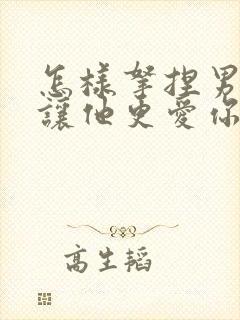 怎樣拏捏男
讓他更愛你
高生韜